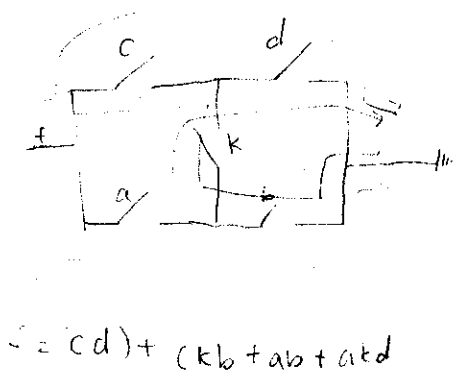 c d
f
k
a b
= (cd) + (kb + ab + akd